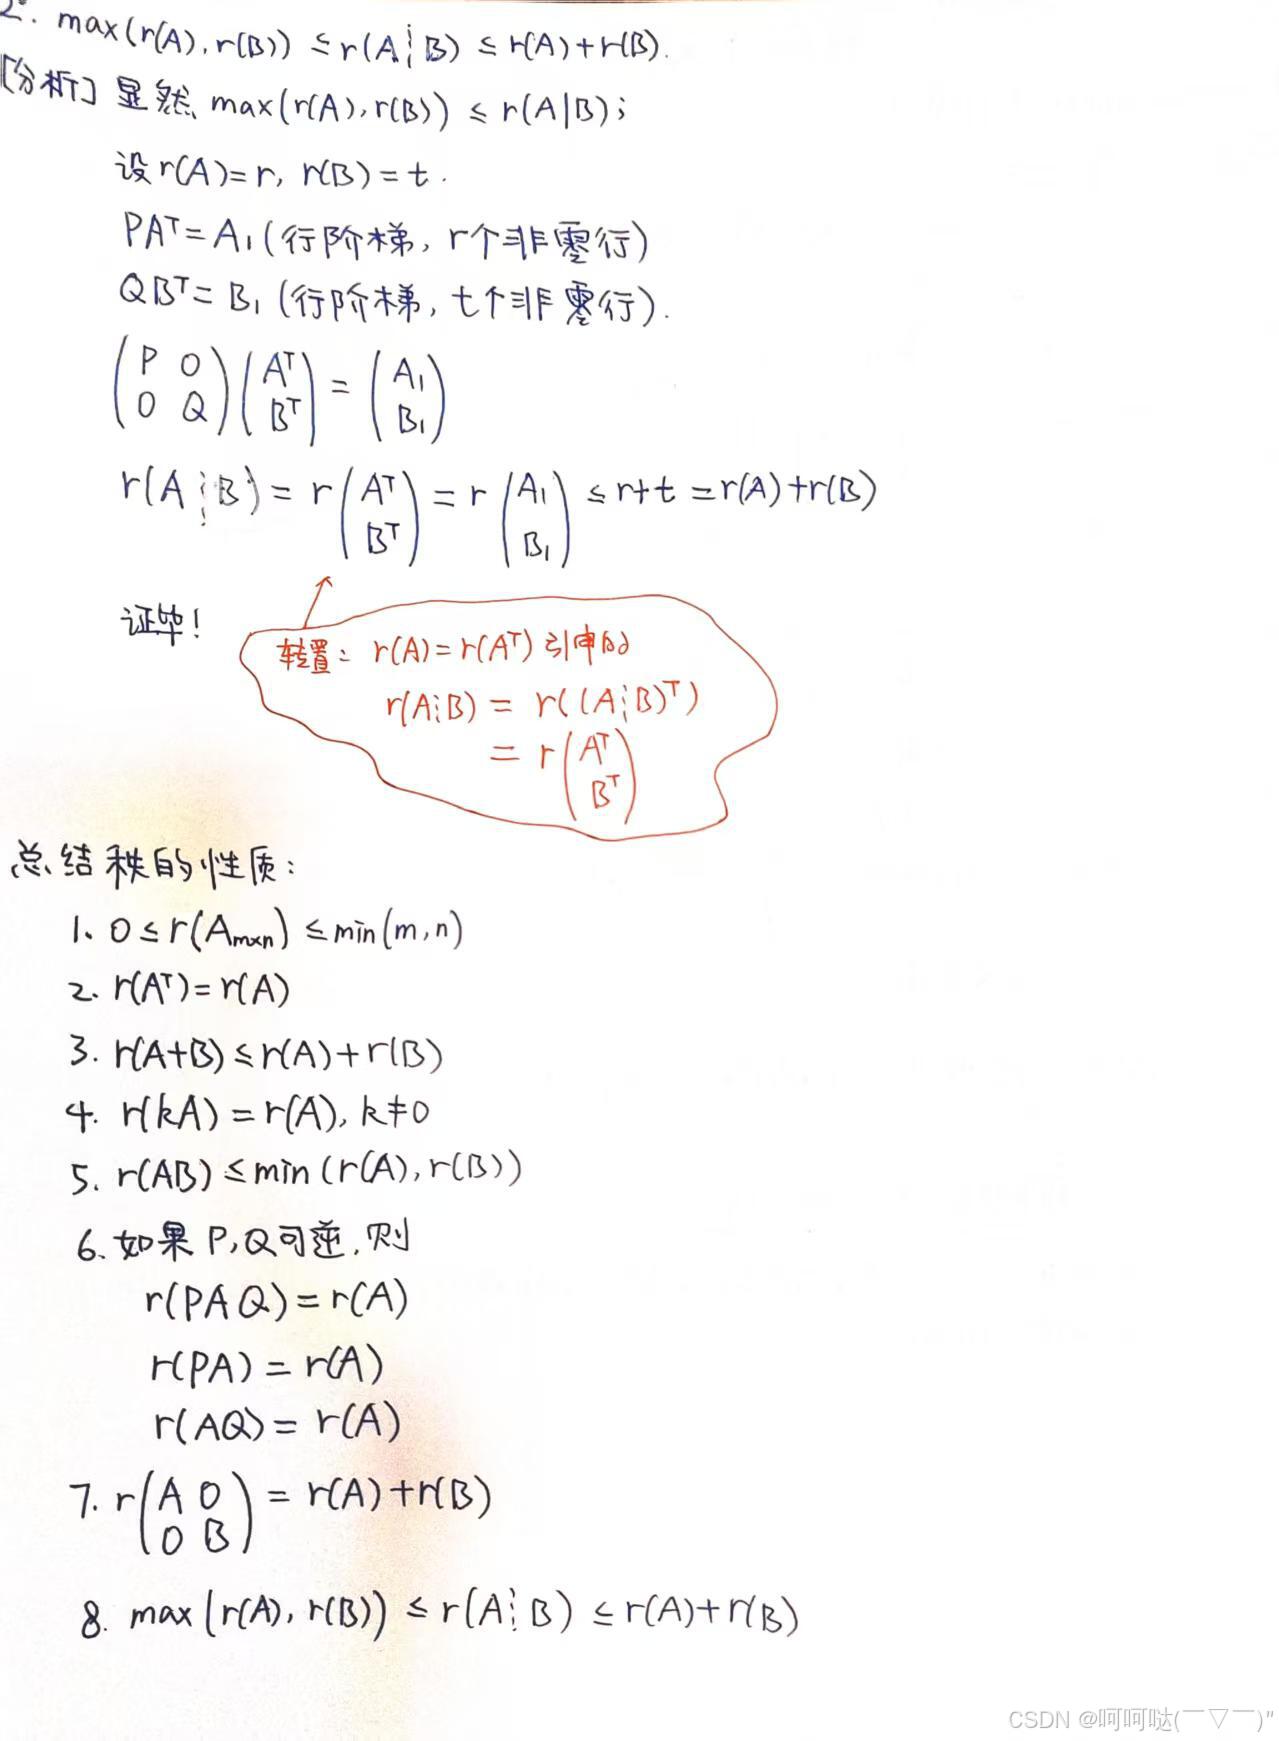 2. max(r(A), r(B)) ≤ r(A┊B) ≤ r(A)+r(B).
[分析] 显然 max(r(A), r(B)) ≤ r(A|B);
设 r(A)=r, r(B)=t.
PAᵀ=A₁(行阶梯, r个非零行)
QBᵀ=B₁(行阶梯, t个非零行).
(P O; O Q)(Aᵀ; Bᵀ) = (A₁; B₁)
r(A┊B) = r(Aᵀ; Bᵀ) = r(A₁; B₁) ≤ r+t = r(A)+r(B)
证毕!
转置: r(A)=r(Aᵀ) 引申的
r(A┊B) = r((A┊B)ᵀ)
= r(Aᵀ; Bᵀ)
总结秩的性质:
1. 0 ≤ r(Aₘₓₙ) ≤ min(m,n)
2. r(Aᵀ)=r(A)
3. r(A+B) ≤ r(A)+r(B)
4. r(kA) = r(A), k≠0
5. r(AB) ≤ min(r(A), r(B))
6. 如果 P,Q可逆, 则
r(PAQ)=r(A)
r(PA) = r(A)
r(AQ) = r(A)
7. r(A O; O B) = r(A)+r(B)
8. max(r(A), r(B)) ≤ r(A┊B) ≤ r(A)+r(B)
CSDN @呵呵哒(￣▽￣)"